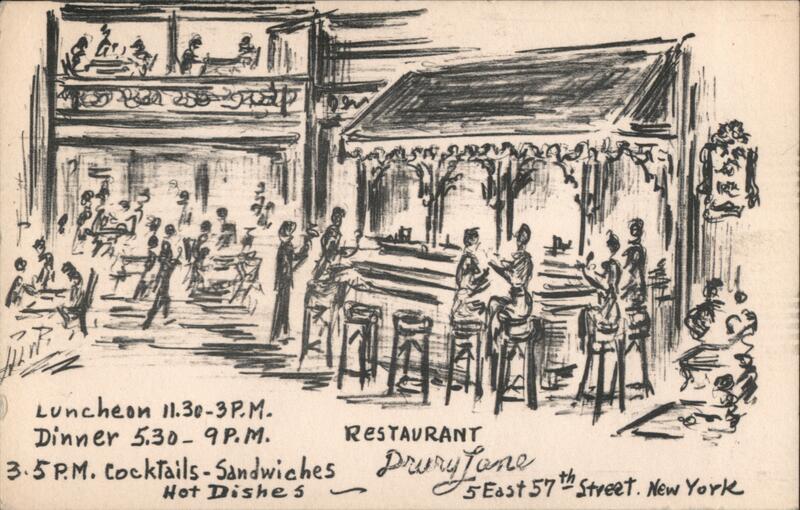 Luncheon 11.30-3P.M.
Dinner 5.30- 9P.M.
3.5P.M. Cocktails-Sandwiches
Hot Dishes
RESTAURANT
Drury Lane
5 East 57th Street. New York